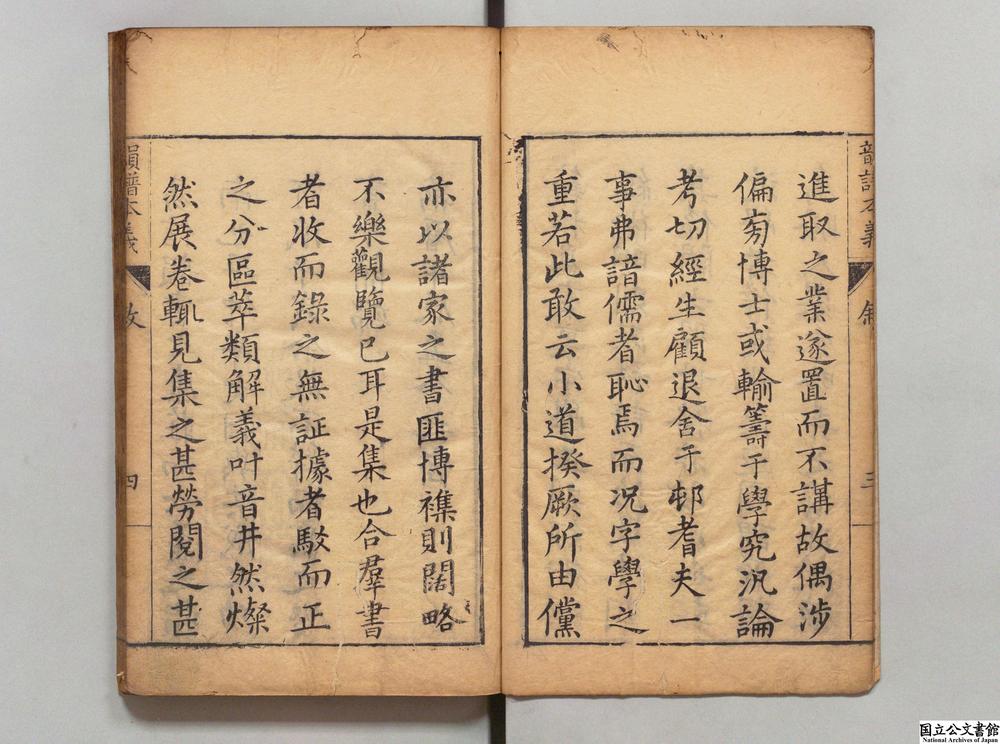 進取之業遂置而不講故偶涉
偏旁博士或輸籌于學究汎論
考切經生顧退舍于邨耆夫一
事弗諳儒者恥焉而况字學之
重若此敢云小道揆厥所由儻
亦以諸家之書匪博襍則闊略
不樂觀覽已耳是集也合羣書
者收而錄之無証據者駁而正
之分區萃類解義叶音井然燦
然展卷輒見集之甚勞閱之甚
韻譜本義
叙
三
四
国立公文書館
National Archives of Japan